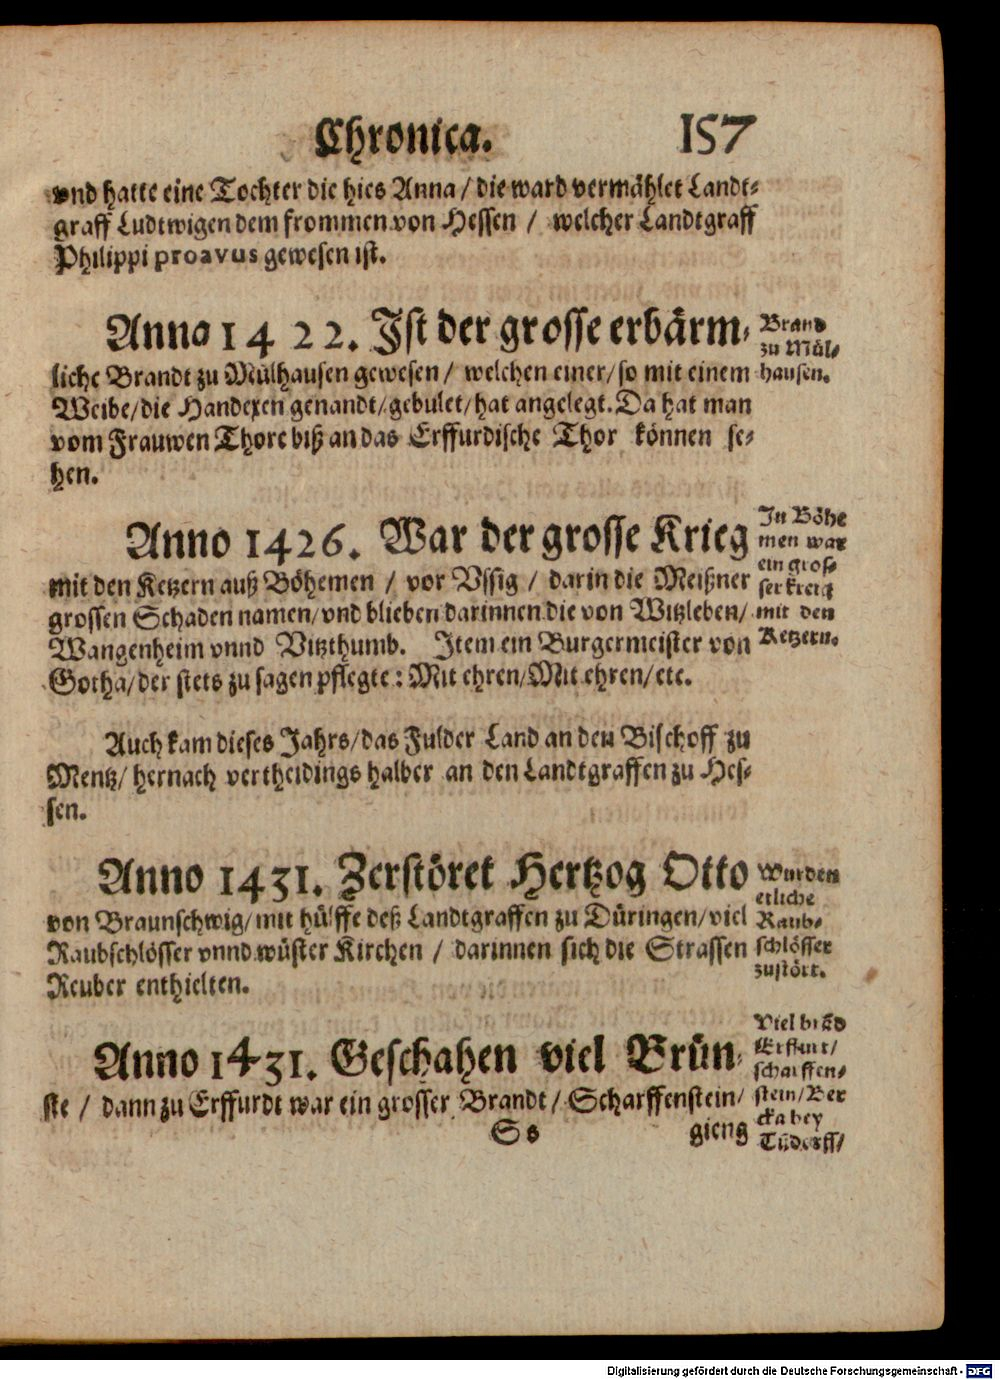 Chronica. 157
vnd hatte eine Tochter die hies Anna/ die ward vermählet Landt-
graff Ludtwigen dem frommen von Hessen / welcher Landtgraff
Philippi proavus gewesen ist.
Anno 1422. Ist der grosse erbärm-
liche Brandt zu Mülhausen gewesen / welchen einer/ so mit einem
Weibe/ die Handexen genandt/ gebulet/ hat angelegt. Da hat man
vom Frauwen Thore biß an das Erffurdische Thor können se-
hen.
Brand
zu Mül-
hausen.
Anno 1426. War der grosse Krieg
mit den Ketzern auß Böhemen / vor Vssig / darin die Meißner
grossen Schaden namen/ vnd blieben darinnen die von Witzleben/
Wangenheim vnnd Vitzthumb. Item ein Burgermeister von
Gotha/ der stets zu sagen pflegte: Mit ehren/ Mit ehren/ etc.
In Böhe
men war
ein gros-
ser kreig
mit den
Ketzern.
Auch kam dieses Jahrs/ das Fulder Land an den Bischoff zu
Mentz/ hernach vertheidings halber an den Landtgraffen zu Hes-
sen.
Anno 1431. Zerstöret Hertzog Otto
von Braunschwig/ mit hülffe deß Landtgraffen zu Düringen/ viel
Raubschlösser vnnd wüster Kirchen / darinnen sich die Strassen
Reuber enthielten.
Wurden
etliche
Raub-
schlösser
zustört.
Anno 1431. Geschahen viel Brün-
ste / dann zu Erffurdt war ein grosser Brandt/ Scharffenstein/
Ss gieng
Viel bräd
Erffurt/
scharffen-
stein/ Ber
cka bey
Tüdorff/
Digitalisierung gefördert durch die Deutsche Forschungsgemeinschaft - DFG